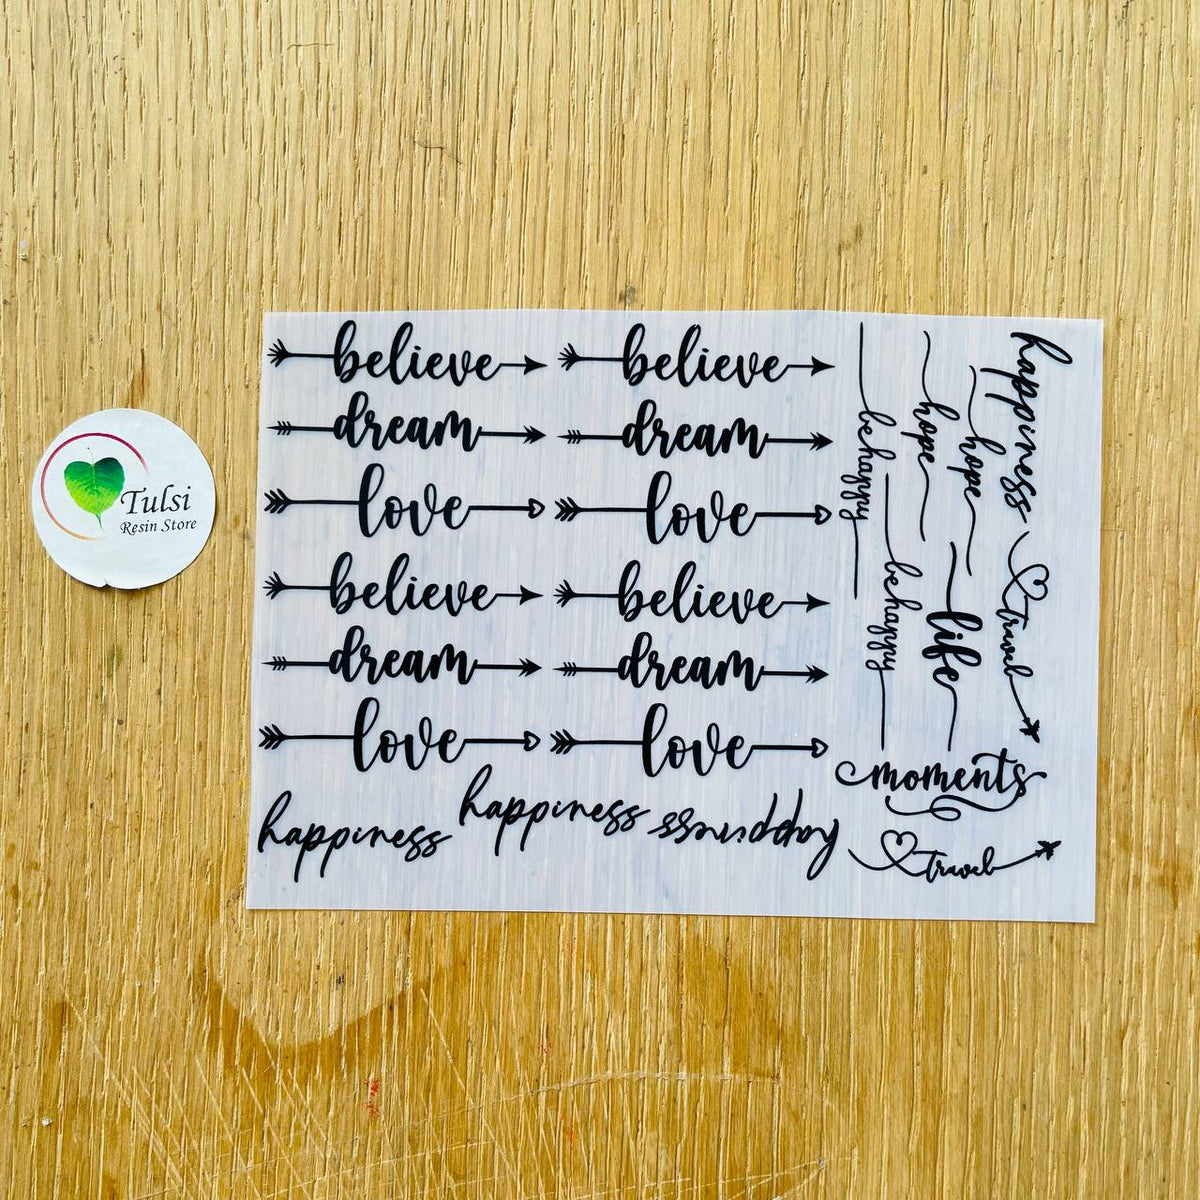 Tulsi
Resin Store
believe
believe
dream
dream
love
love
believe
believe
dream
dream
love
love
happiness
happiness
happiness
behappy
behappy
hope
hope
life
happiness
travel
moments
travel